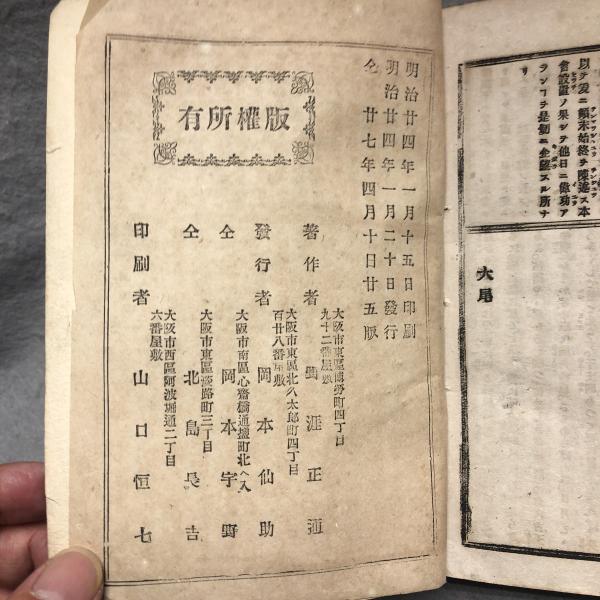 以テ爰ニ顛末始終ヲ陳述ス本
會設置ノ果シテ他日ニ偉功ア
ラン
リ
大尾
明治廿四年一月十五日印刷
明治廿四年一月二十日發行
仝廿七年四月十日廿五版
版權所有
大阪市東區博勞町四丁目
九十二番屋敷
著作者 正通
大阪市東區北久太郎町四丁目
百廿八番屋敷
發行者 岡本仙助
大阪市南區心齋橋通塩町北ヘ入
仝 岡本宇野
大阪市東區淡路町三丁目
仝 北島長吉
大阪市西區阿波堀通二丁目
六番屋敷
印刷者 山口恒七